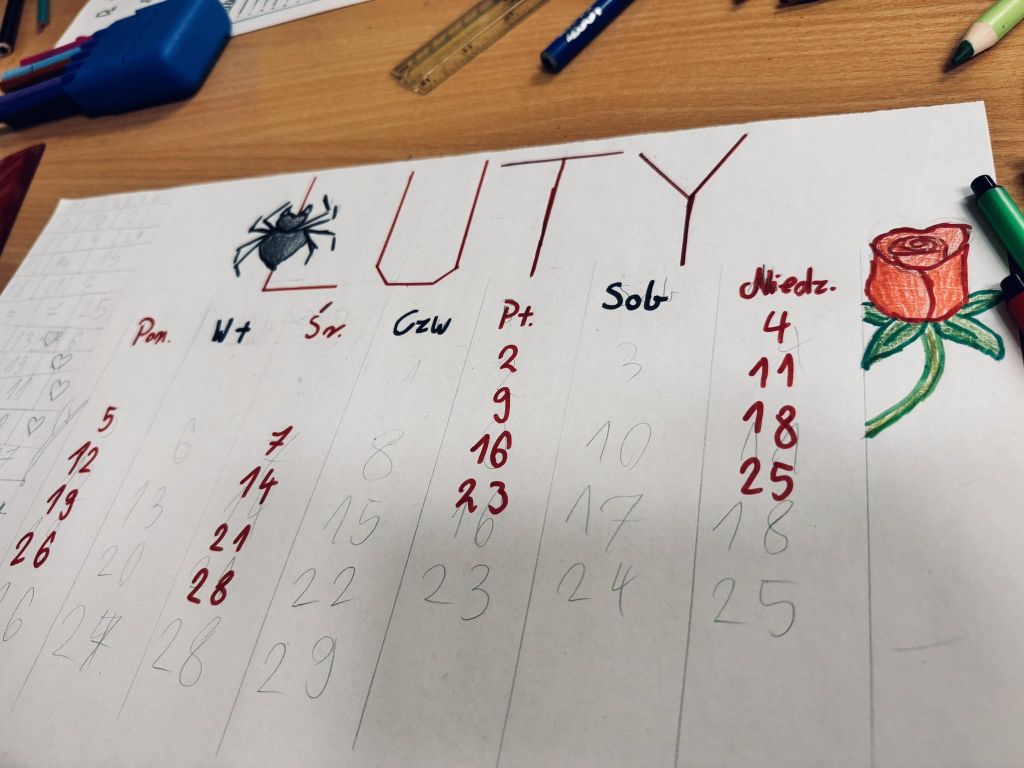 LUTY
Pon. Wt Śr. Czw Pt. Sob Niedz.
1 2 3 4
5 6 7 8 9 10 11
12 13 14 15 16 17 18
19 20 21 22 23 24 25
26 27 28 29